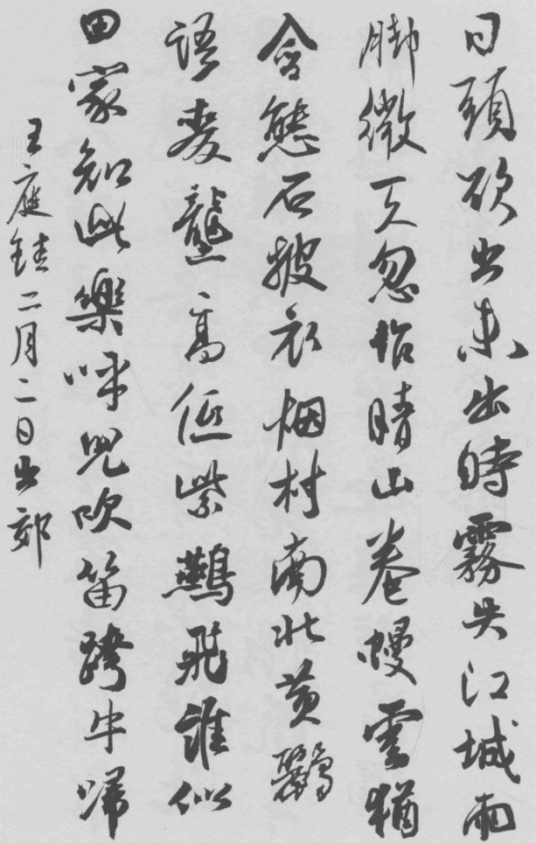 日頭欲出未出時霧失江城雨
脚微天忽作晴山卷幔雲猶
含態石披衣烟村南北黄鸝
語麥壟高低紫鷰飛誰似
田家知此樂呼兒吹笛跨牛歸
王庭珪二月二日出郊